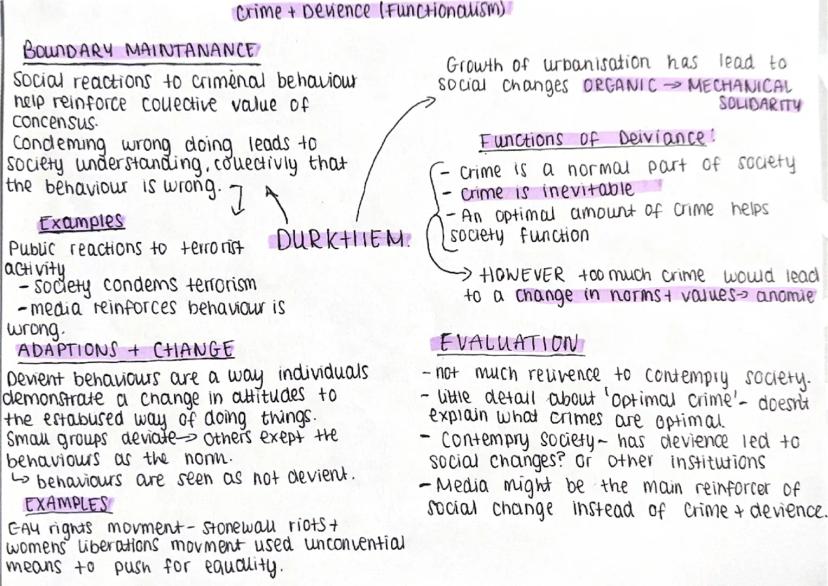 Crime + Devience (Functionalism)
BOUNDARY MAINTANANCE
Social reactions to criminal behaviour
help reinforce collective value of
concensus.
Condeming wrong doing leads to
society understanding, collectivly that
the behaviour is wrong.
Examples
Public reactions to terrorist
activity
- society condems terrorism
- media reinforces behaviour is
wrong.
ADAPTIONS + CHANGE
Devient behaviours are a way individuals
demonstrate a change in attitudes to
the estabused way of doing things.
Small groups deviate → Others exept the
behaviours as the norm.
↳ behaviours are seen as not devient.
EXAMPLES
GAY rights movment - Stonewall riots +
womens liberations movment used unconvential
means to push for equality.
DURKHIEM.
Growth of urbanisation has lead to
social changes ORGANIC → MECHANICAL
SOLIDARITY
Functions of Deiviance:
- Crime is a normal part of society
- Crime is inevitable
- An optimal amount of crime helps
society function
→ HOWEVER too much crime would lead
to a change in norms + values → anomie
EVALUATION
- not much relivence to contempry society.
- little detail about 'optimal crime' - doesnt
explain what crimes are optimal.
- Contempry society - has devience led to
social changes? Or other institutions
- Media might be the main reinforcer of
social change instead of crime + devience.